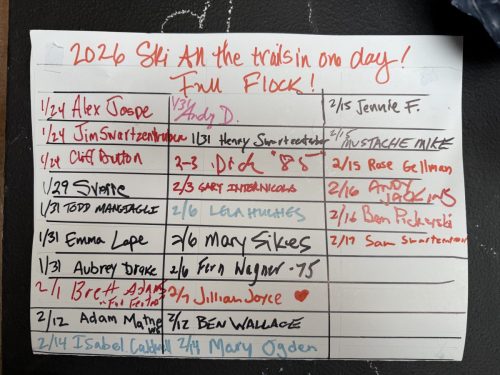 2026 Ski All the trails in one day!
Full Flock!
1/24 Alex Jospe
1/24 Jim Swartzentruber
1/24 Cliff Button
1/29 Svarre
1/31 TODD MANGIAGLI
1/31 Emma Lape
1/31 Aubrey Drake
2/1 Brett Adams
2/12 Adam Mathews
2/14 Isabel Caldwell
1/31 Andy D.
1/31 Henry Swartzentruber
2-3 Dick "85"
2/3 GARY INTERNICOLA
2/6 LELA HUGHES
2/6 Mary Sikes
2/6 Fern Wagner - 75
2/7 Jillian Joyce ♥
2/12 BEN WALLACE
2/14 Mary Ogden
2/15 Jennie F.
2/15 MUSTACHE MIKE
2/15 Rose Gellman
2/16 ANDY JACKINS
2/16 Ben
2/17 Sam Swartzentruber